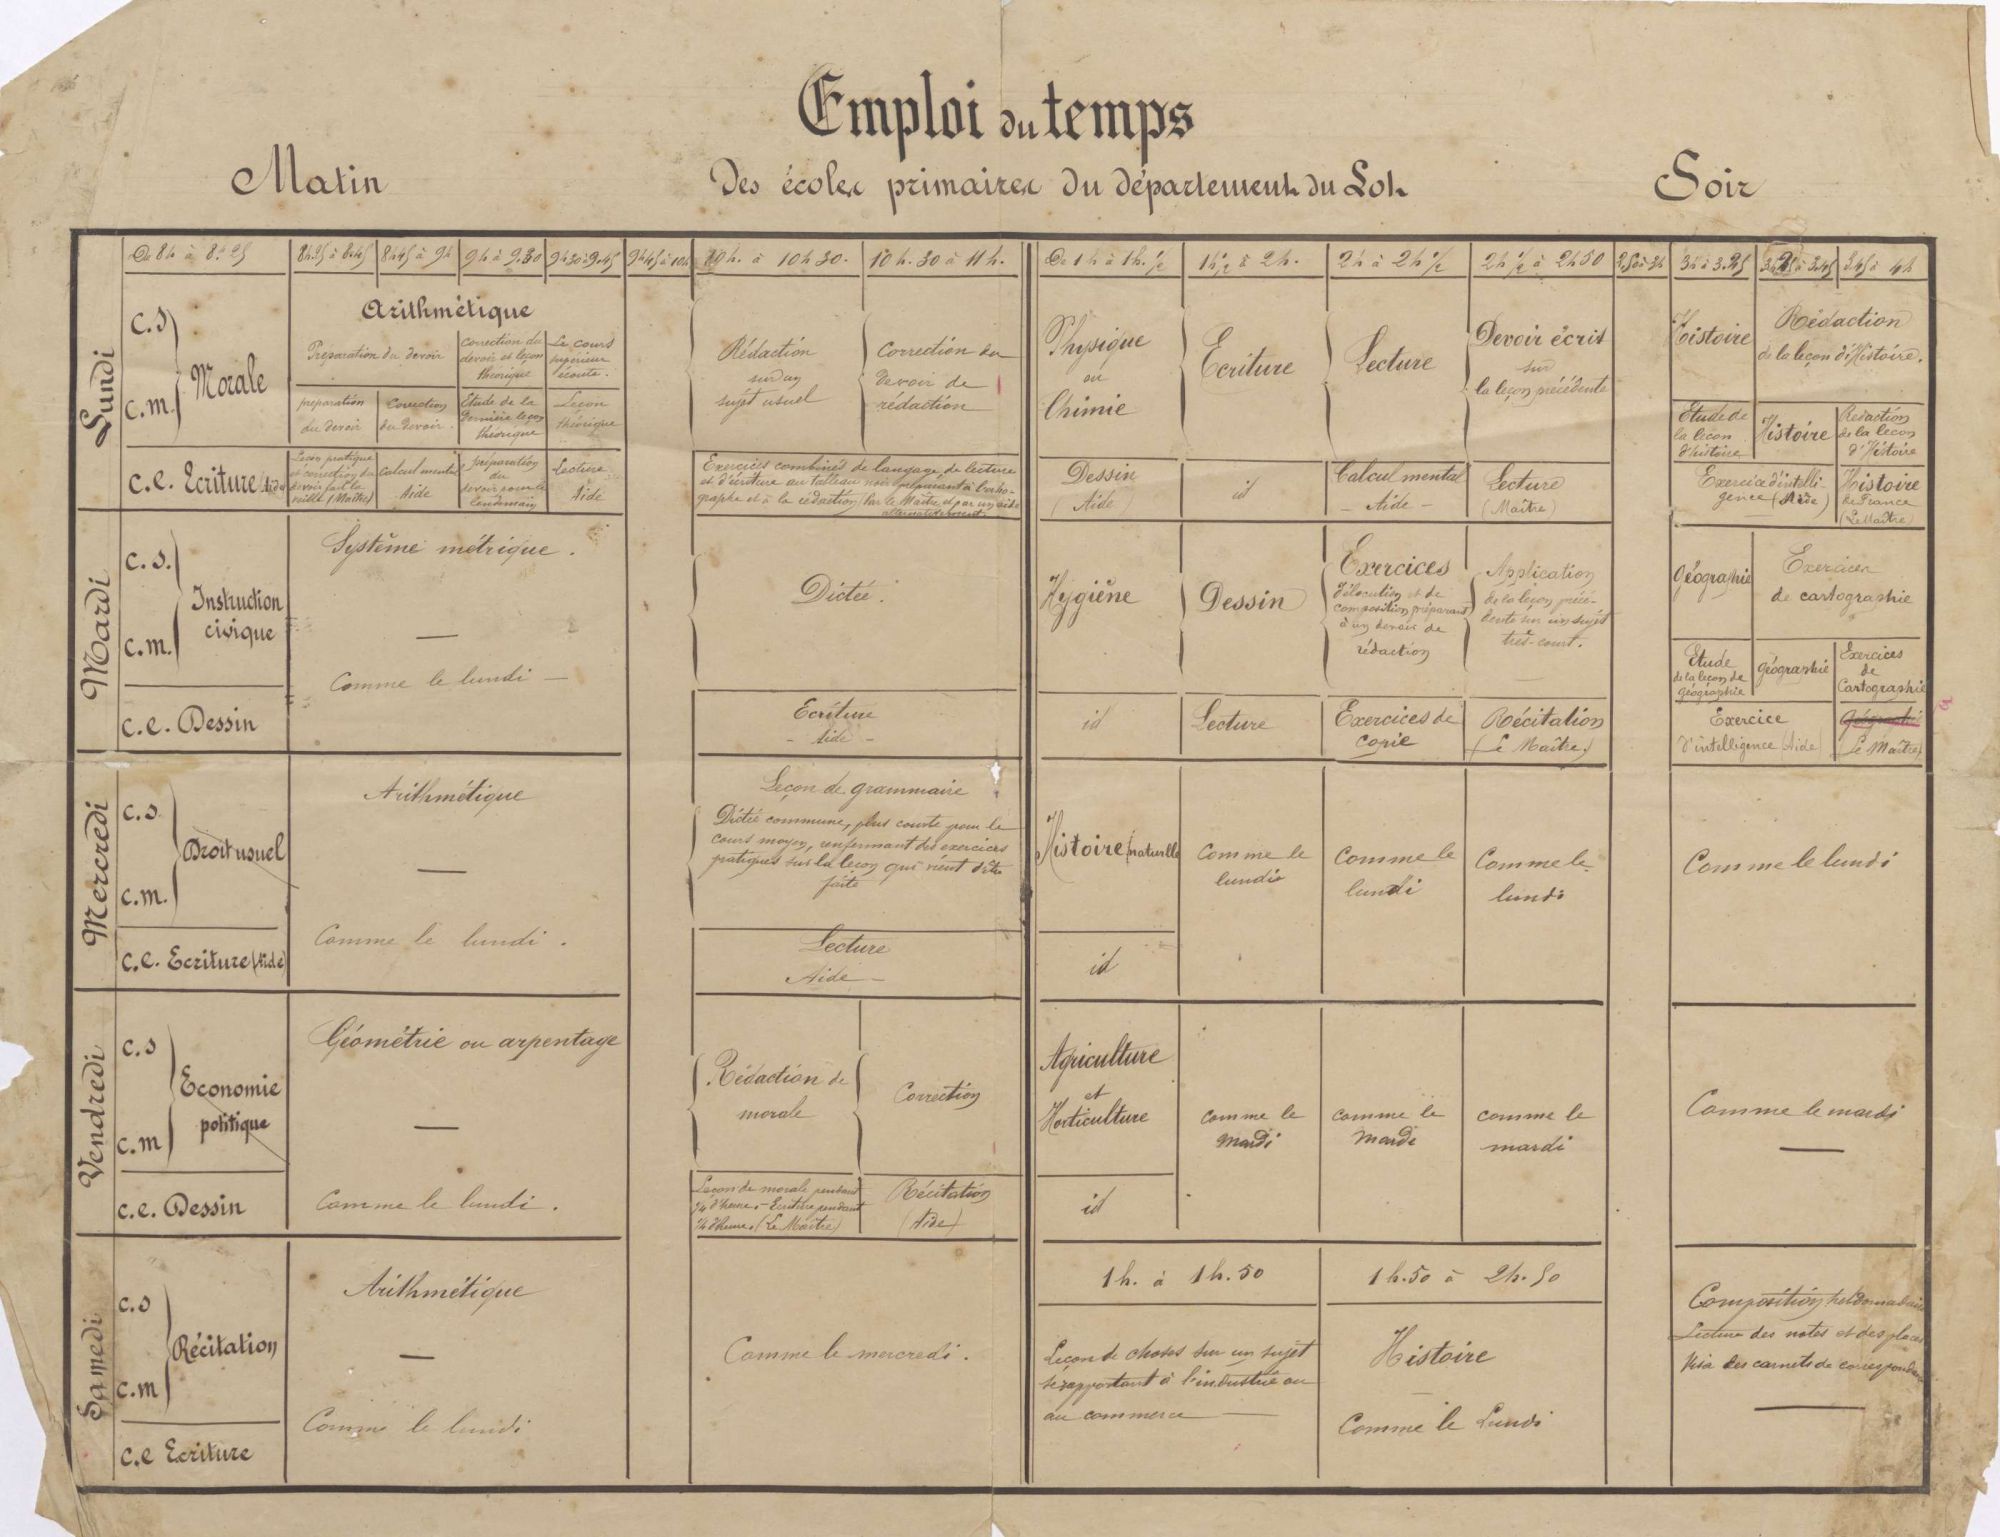 Emploi du temps
Matin
Des écoles primaires du département du Lot
Soir
De 8h à 8h.25
8h25 à 8.45
8h45 à 9h
9h à 9.30
9h30 à 9.45
9h45 à 10h
10h. à 10h30.
10h.30 à 11h.
De 1h à 1h.½
1h½ à 2h.
2h à 2h½
2h½ à 2h50
2.50 à 3h
3h à 3.25
3h25 à 3.45
3.45 à 4h
Lundi
C.S
C.m.
Morale
C.e. Ecriture (Aide)
Arithmétique
Préparation du devoir
Correction du
devoir et leçon
théorique
Le cours
supérieur
écoute.
préparation
du devoir
Correction
du devoir.
Etude de la
dernière leçon
théorique
Leçon
théorique
Leçon pratique
et correction du
devoir fait la
veille (Maître)
Calcul mental
Aide
préparation
du
devoir pour le
lendemain
Lecture
Aide
Rédaction
sur un
sujet usuel
Correction du
devoir de
rédaction
Exercices combinés de langage, de lecture
et d'écriture au tableau noir préparant à l'ortho-
graphe et à la rédaction (Par le Maître et par un aide
alternativement)
Physique
ou
Chimie
Ecriture
Lecture
Devoir écrit
sur
la leçon précédente
Dessin
(Aide)
id
Calcul mental
- Aide -
Lecture
(Maître)
Histoire
Rédaction
de la leçon d'Histoire.
Etude de
la leçon
d'histoire
Histoire
Rédaction
de la leçon
d'Histoire
Exercice d'intelli-
gence (Aide)
Histoire
de France
(Le Maître)
Mardi
C.S.
C.m.
Instruction
civique
C.e. Dessin
Système métrique.
—
Comme le lundi —
Dictée.
Ecriture
- Aide -
Hygiène
Dessin
Exercices
d'élocution et de
composition préparant
à un devoir de
rédaction
Application
de la leçon précé-
dente sur un sujet
très-court.
id
Lecture
Exercices de
copie
Récitation
(Le Maître)
Géographie
Exercices
de cartographie
Etude
de la leçon de
géographie
Géographie
Exercices
de
Cartographie
Exercice
d'intelligence (Aide)
Géographie
(Le Maître)
Mercredi
C.S
C.m.
Droit usuel
C.e. Ecriture (Aide)
Arithmétique
—
Comme le lundi.
Leçon de grammaire
Dictée commune, plus courte pour le
cours moyen, renfermant des exercices
pratiques sur la leçon qui vient d'être
faite
Lecture
Aide —
Histoire (naturelle
id
Comme le
lundi
Comme le
lundi
Comme le
lundi
Comme le lundi
Vendredi
C.S
C.m
Economie
politique
C.e. Dessin
Géométrie ou arpentage
—
Comme le lundi.
Rédaction de
morale
Correction
Leçon de morale pendant
¼ d'heure. - Ecriture pendant
¼ d'heure. (Le Maître)
Récitation
(Aide)
Agriculture
et
Horticulture
id
Comme le
mardi
Comme le
mardi
comme le
mardi
Comme le mardi
—
Samedi
C.S
C.m
Récitation
C.e Ecriture
Arithmétique
—
Comme le lundi
Comme le mercredi.
1h. à 1h.50
1h.50 à 2h.50
Leçon de choses sur un sujet
se rapportant à l'industrie ou
au commerce —
Histoire
—
Comme le Lundi
Composition hebdomadaire
Lecture des notes et des places
Visa des carnets de correspondance
—